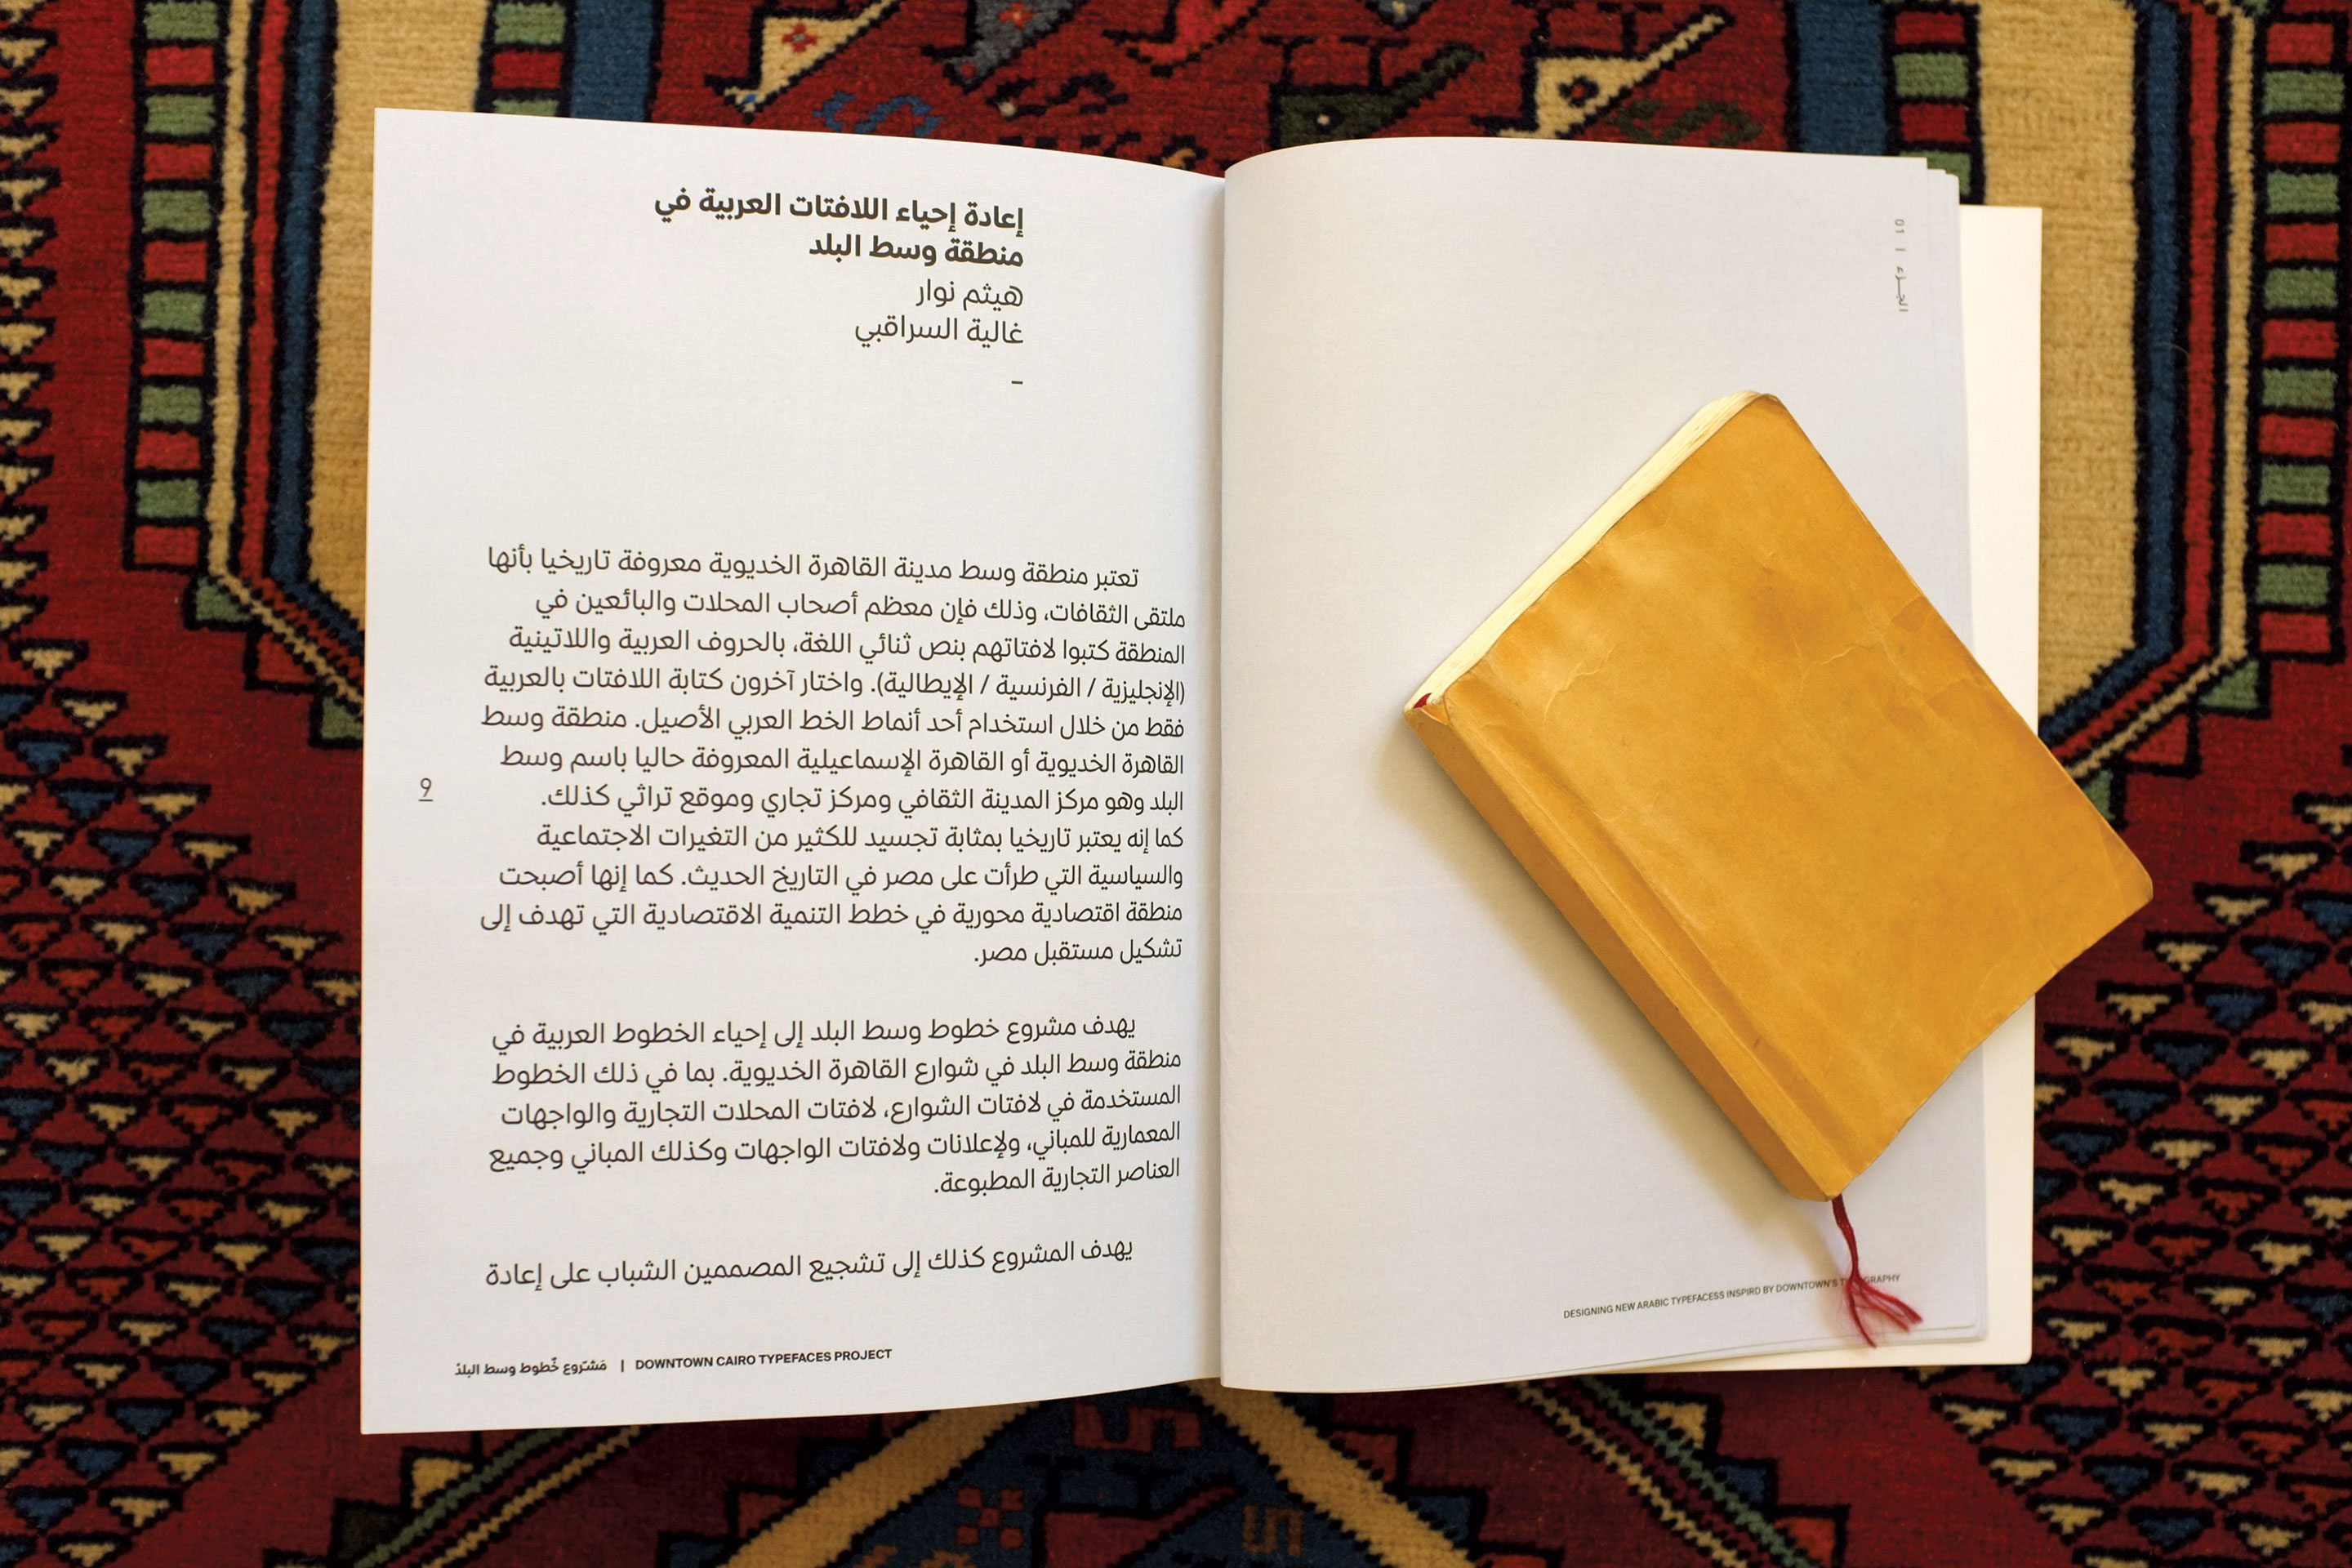 إعادة إحياء اللافتات العربية في
منطقة وسط البلد
هيثم نوار
غالية السراقبي
–
تعتبر منطقة وسط مدينة القاهرة الخديوية معروفة تاريخيا بأنها
ملتقى الثقافات، وذلك فإن معظم أصحاب المحلات والبائعين في
المنطقة كتبوا لافتاتهم بنص ثنائي اللغة، بالحروف العربية واللاتينية
(الإنجليزية / الفرنسية / الإيطالية). واختار آخرون كتابة اللافتات بالعربية
فقط من خلال استخدام أحد أنماط الخط العربي الأصيل. منطقة وسط
القاهرة الخديوية أو القاهرة الإسماعيلية المعروفة حاليا باسم وسط
البلد وهو مركز المدينة الثقافي ومركز تجاري وموقع تراثي كذلك.
كما إنه يعتبر تاريخيا بمثابة تجسيد للكثير من التغيرات الاجتماعية
والسياسية التي طرأت على مصر في التاريخ الحديث. كما إنها أصبحت
منطقة اقتصادية محورية في خطط التنمية الاقتصادية التي تهدف إلى
تشكيل مستقبل مصر.
يهدف مشروع خطوط وسط البلد إلى إحياء الخطوط العربية في
منطقة وسط البلد في شوارع القاهرة الخديوية. بما في ذلك الخطوط
المستخدمة في لافتات الشوارع، لافتات المحلات التجارية والواجهات
المعمارية للمباني، ولإعلانات ولافتات الواجهات وكذلك المباني وجميع
العناصر التجارية المطبوعة.
يهدف المشروع كذلك إلى تشجيع المصممين الشباب على إعادة
9
مشروع خطوط وسط البلد | DOWNTOWN CAIRO TYPEFACES PROJECT
الجزء | 01
DESIGNING NEW ARABIC TYPEFACESS INSPIRD BY DOWNTOWN'S TYPOGRAPHY